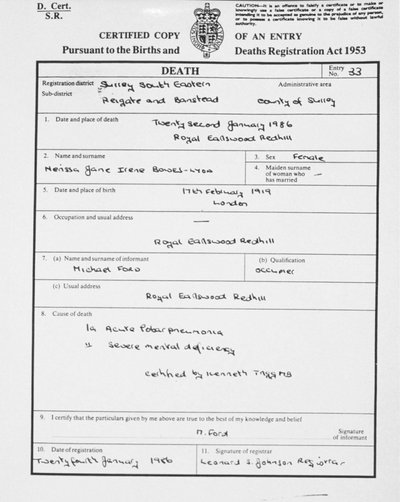 D. Cert.
S.R.
CAUTION:—It is an offence to falsify a certificate or to make or
knowingly use a false certificate or a copy of a false certificate
intending it to be accepted as genuine to the prejudice of any person,
or to possess a certificate knowing it to be false without lawful
authority.
CERTIFIED COPY OF AN ENTRY
Pursuant to the Births and Deaths Registration Act 1953
DEATH
Entry No. 33
Registration district Surrey South Eastern
Administrative area
Sub-district Reigate and Banstead
County of Surrey
1. Date and place of death
Twenty second January 1986
Royal Earlswood Redhill
2. Name and surname
Nerissa Jane Irene BOWES-LYON
3. Sex Female
4. Maiden surname
of woman who
has married —
5. Date and place of birth
17th February 1919
London
6. Occupation and usual address
—
Royal Earlswood Redhill
7. (a) Name and surname of informant
Michael FORD
(b) Qualification
Occupier
(c) Usual address
Royal Earlswood Redhill
8. Cause of death
Ia Acute lobar pneumonia
II Severe mental deficiency
Certified by Kenneth MB
9. I certify that the particulars given by me above are true to the best of my knowledge and belief
M. Ford
Signature
of informant
10. Date of registration
Twenty fourth January 1986
11. Signature of registrar
Leonard S. Johnson Registrar